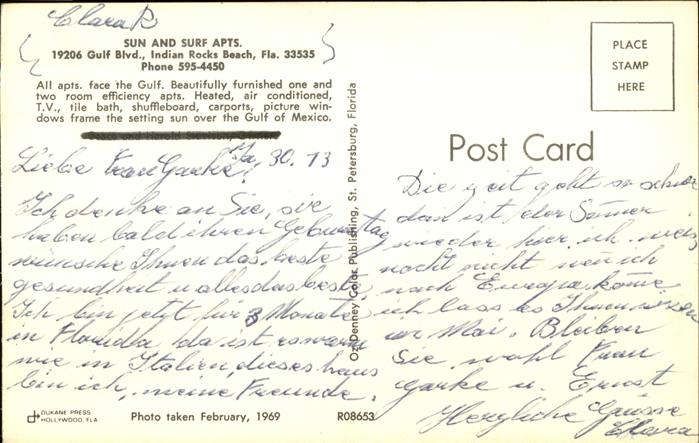 Clara R
SUN AND SURF APTS.
19206 Gulf Blvd., Indian Rocks Beach, Fla. 33535
Phone 595-4450
All apts. face the Gulf. Beautifully furnished one and
two room efficiency apts. Heated, air conditioned,
T.V., tile bath, shuffleboard, carports, picture win-
dows frame the setting sun over the Gulf of Mexico.
30. 73
Liebe Frau Garke!
Ich denke an Sie, sie
haben bald ihren Geburtstag
wünsche Ihnen das beste
gesundheit u alles das beste
Ich bin jetzt für 3 Monate
in Floridha da ist es warm
wie in Italien, dieses haus
bin ich, meine Freunde.
DUKANE PRESS
HOLLYWOOD, FLA.
Photo taken February, 1969
R08653
Oz Denney Color Publishing, St. Petersburg, Florida
PLACE
STAMP
HERE
Post Card
Die zeit geht so schnel
dan ist der Somer
wieder hier, ich weis
noch nicht wen ich
nach Europa kome
ich lass es Ihnen wissen
Mai. Bleiben
Sie wohl Frau
Garke u. Ernst
Herzliche Grüsse
Clara